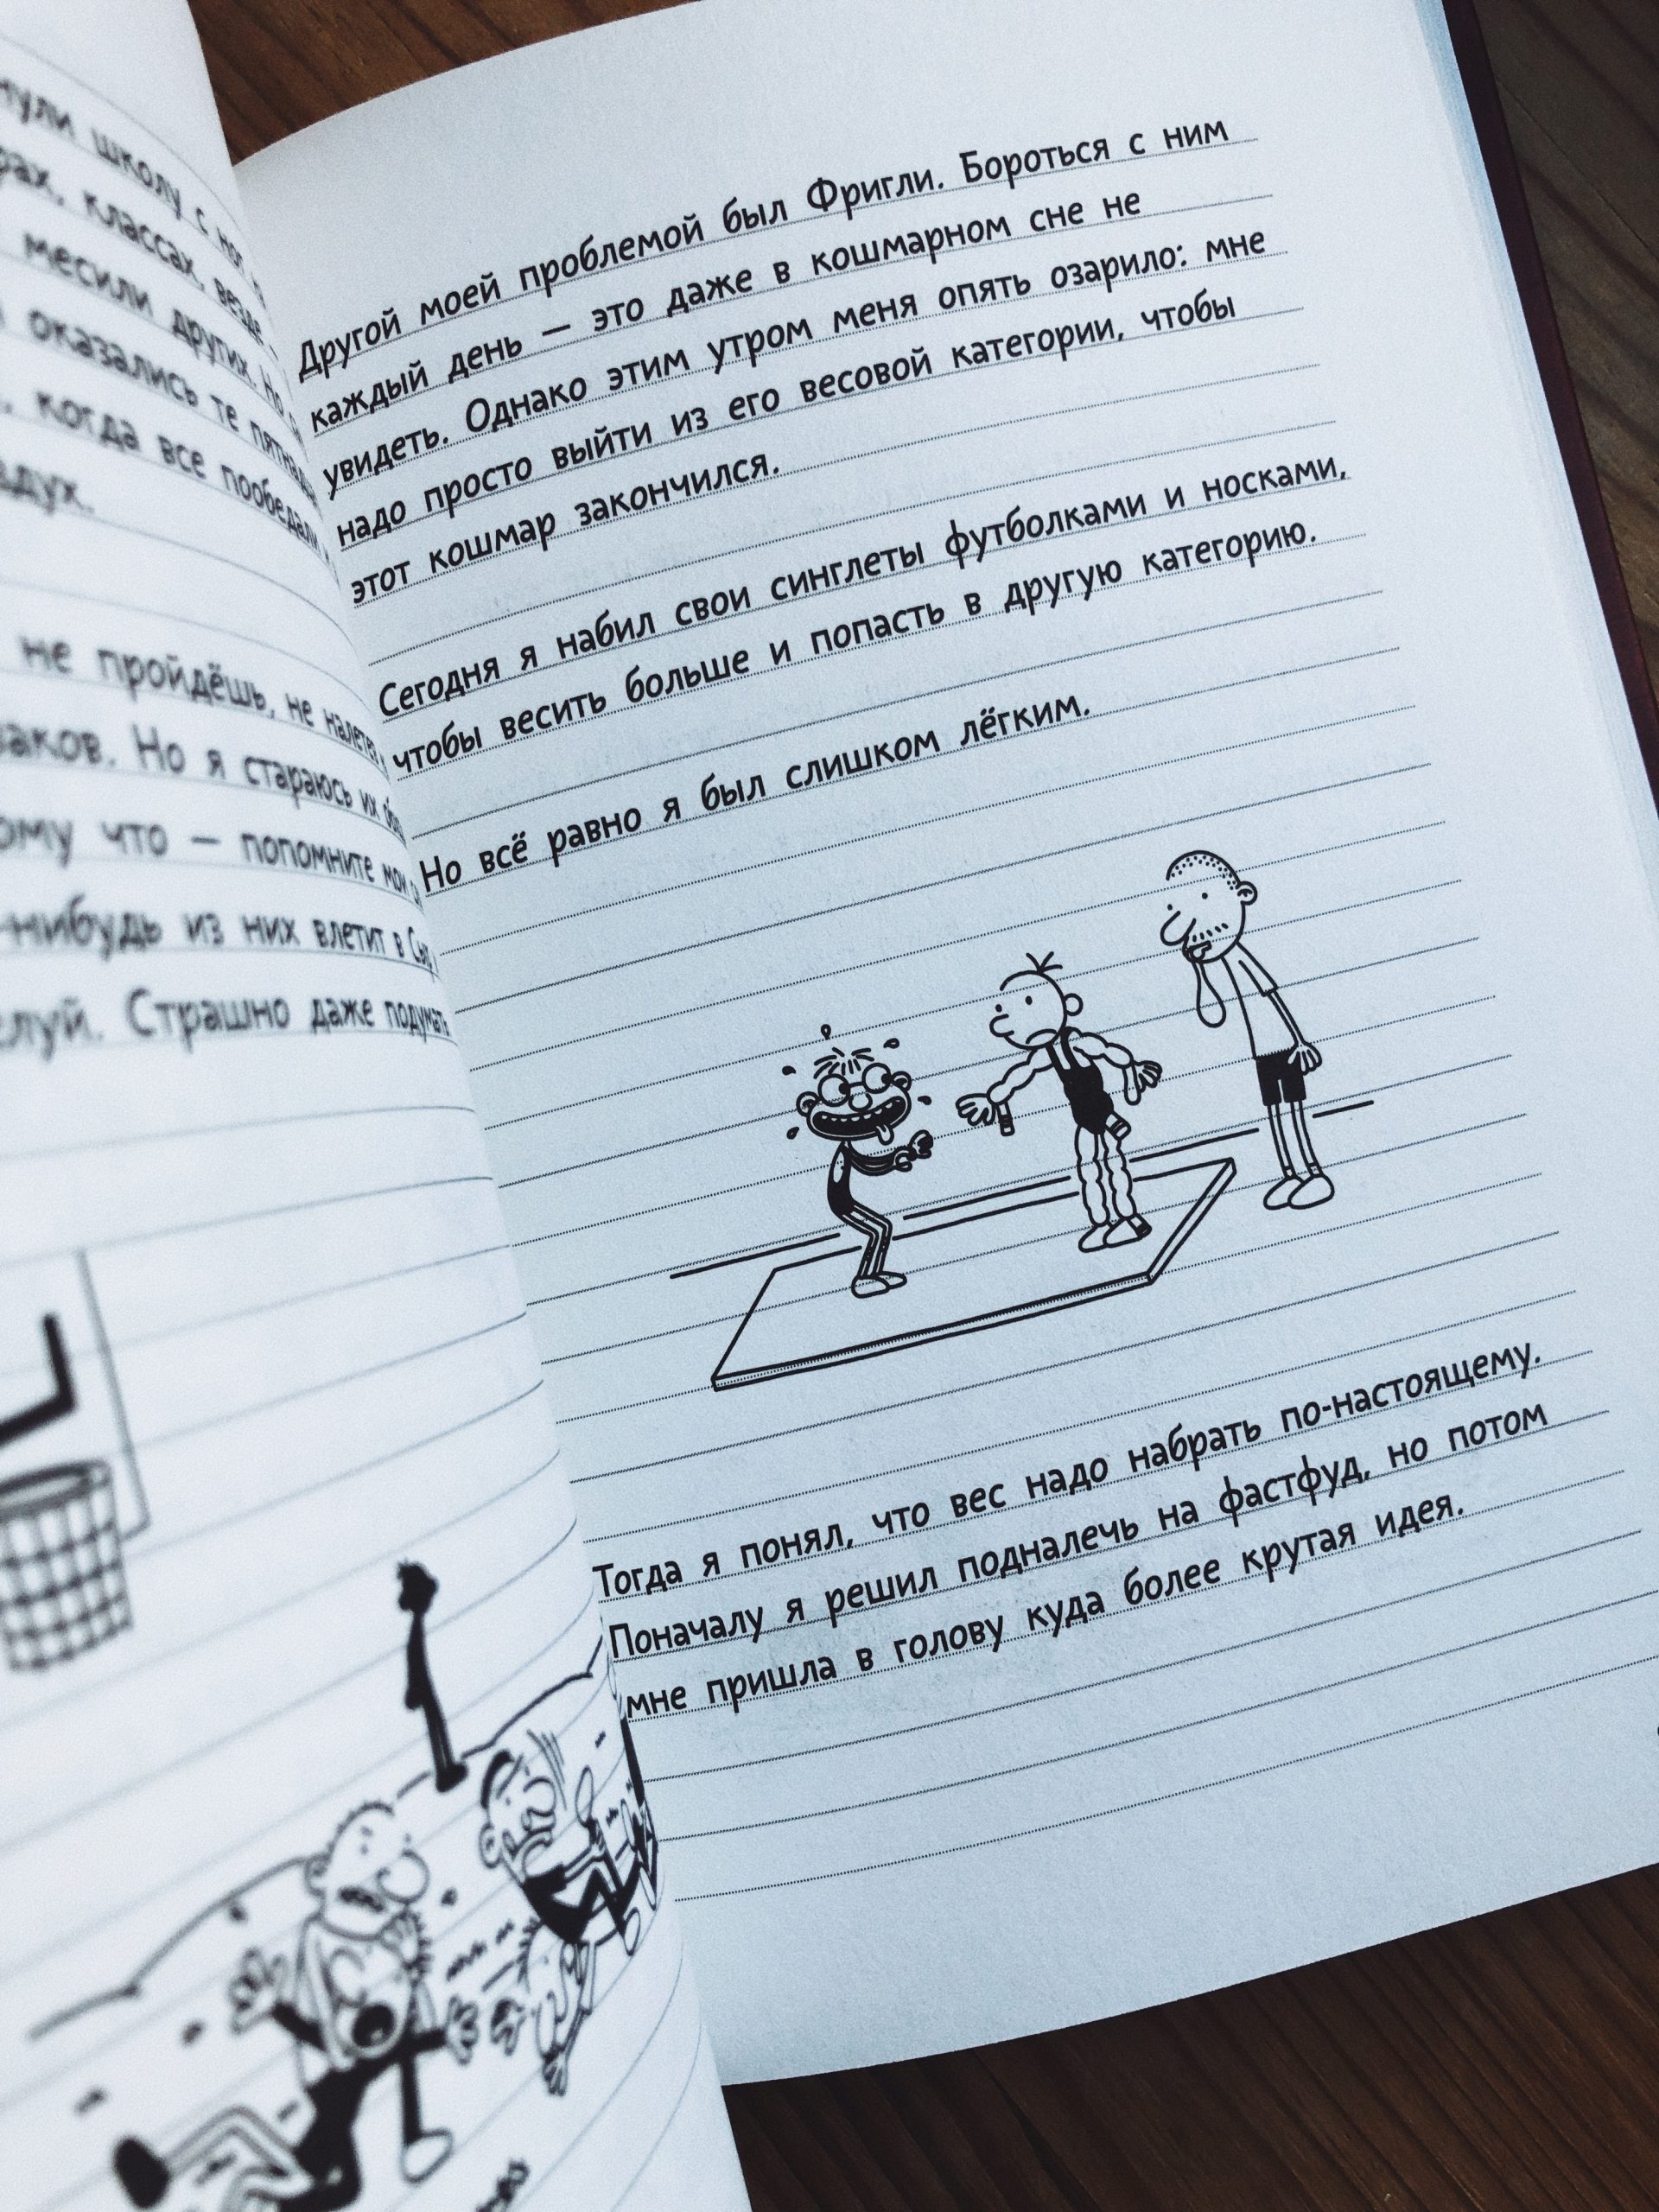 нули школу с ног
рах, классах, везде
месили других. Но
оказались те
когда все пообедали
здух.
не пройдёшь, не
Но я стараюсь их
ому что — попомните мои
-нибудь из них влетит в
елуй. Страшно даже подумать
Другой моей проблемой был Фригли. Бороться с ним
каждый день — это даже в кошмарном сне не
увидеть. Однако этим утром меня опять озарило: мне
надо просто выйти из его весовой категории, чтобы
этот кошмар закончился.
Сегодня я набил свои синглеты футболками и носками,
чтобы весить больше и попасть в другую категорию.
Но всё равно я был слишком лёгким.
Тогда я понял, что вес надо набрать по-настоящему.
Поначалу я решил подналечь на фастфуд, но потом
мне пришла в голову куда более крутая идея.